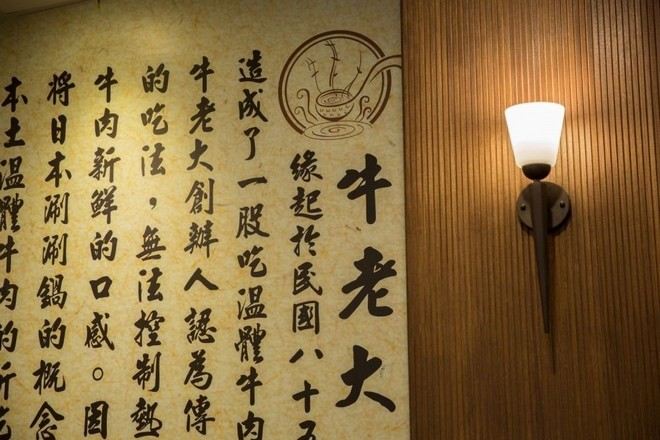 牛老大
緣起於民國八十五
造成了一股吃溫體牛肉
牛老大創辦人認為傳
的吃法，無法控制熱
牛肉新鮮的口感。因
將日本涮涮鍋的概念
本土溫體牛肉的新吃